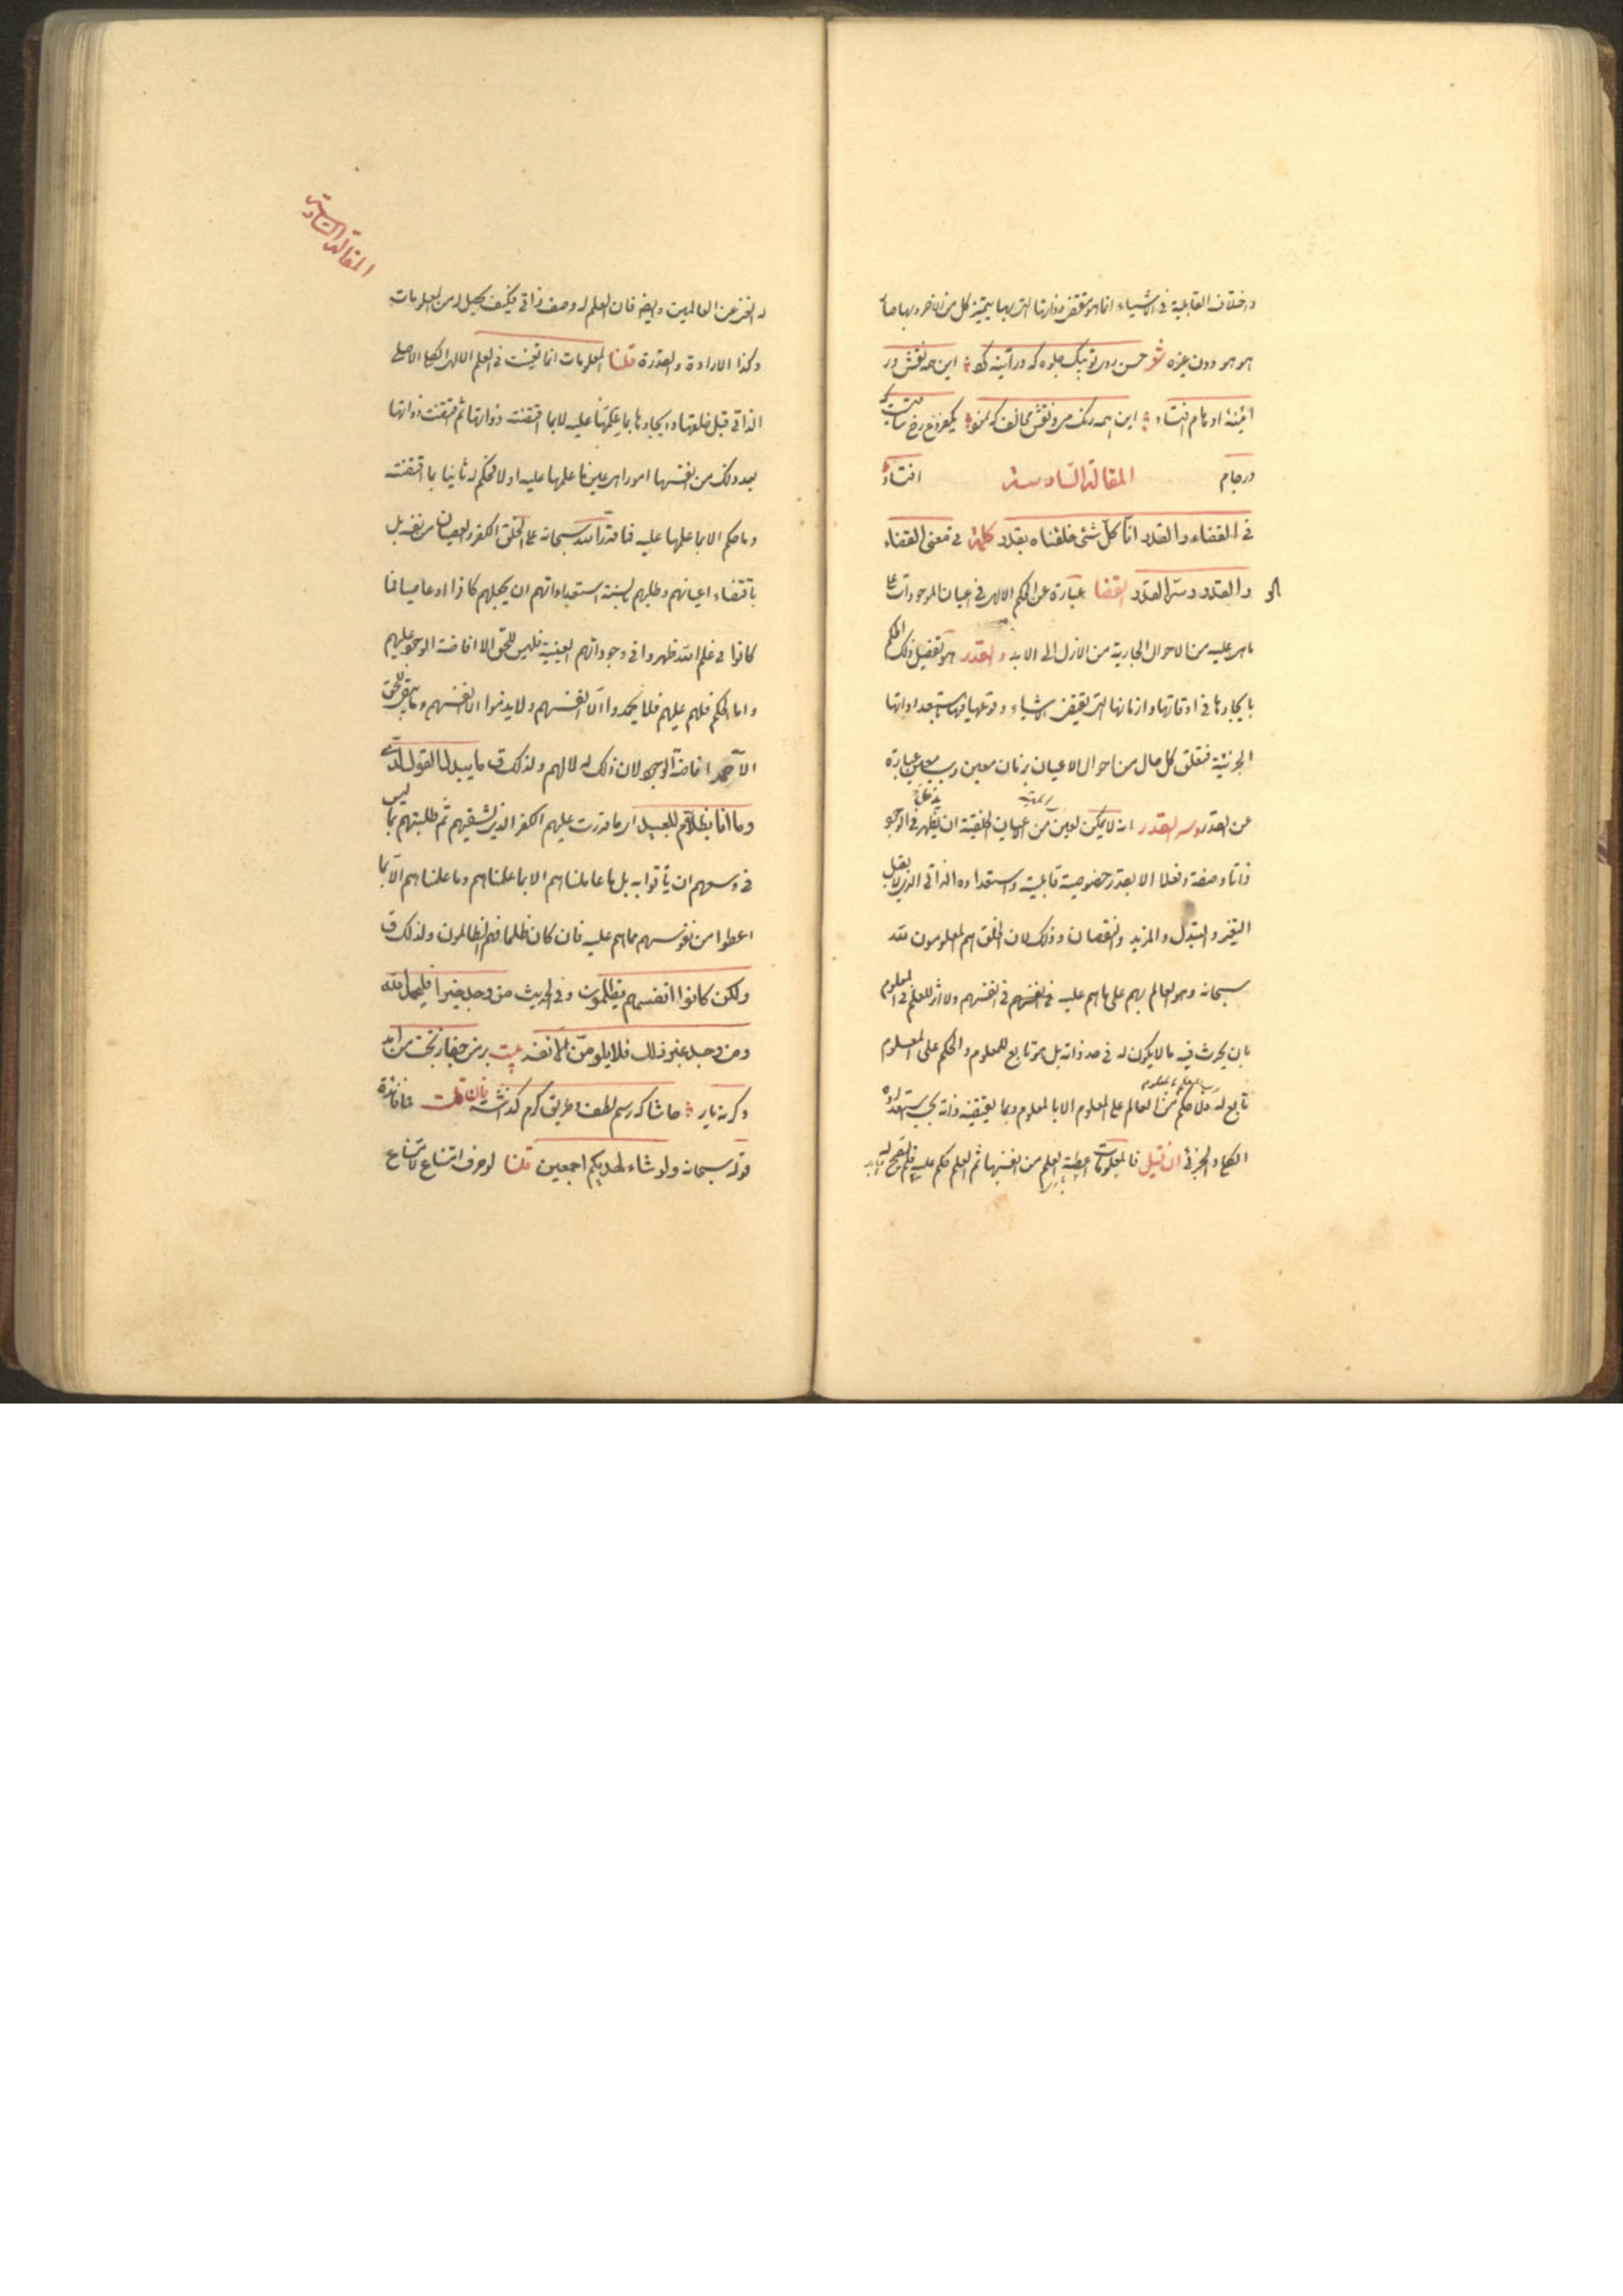 واختلاف القابلية في الاشياء انما هو مقتضى ذواتها التي بها يتميز كل من الاخر وبها صار
هو هو دون غيره شعر حسن روی تو بیک جلوه که در آینه کرد این همه نقش در
آینهٔ اوهام افتاد این همه رنگ می و نقش مخالف که نمود یک فروغ رخ ساقیست که
در جام افتاد
المقالة السادسة
في القضاء والقدر انا كل شئ خلقناه بقدر كلمة في معنى القضاء
والقدر وسر القدر القضا عبارة عن الحكم الالهي في اعيان الموجودات على
ما هي عليه من الاحوال الجارية من الازل الى الابد والقدر هو تفصيل ذلك الحكم
بايجادها في اوقاتها وازمانها التي تقتضي الاشياء وقوعها فيها باستعداداتها
الجزئية فتعلق كل حال من احوال الاعيان بزمان معين وسبب معين عبارة
عن القدر وسر القدر انه لا يمكن لعين من الاعيان الخلقية ان يظهر في الوجود
ذاتا وصفة وفعلا الا بقدر خصوصية قابليته واستعداده الذاتي الذي لا يقبل
التغير والتبدل والمزيد والنقصان وذلك لان الخلق هم المعلومون لله
سبحانه وهو العالم بهم على ما هم عليه في انفسهم ولا اثر للعلم في المعلوم
بان يحدث فيه ما لا يكون له في حد ذاته بل هو تابع للمعلوم والحكم على المعلوم
تابع له فلا حكم من العالم على المعلوم الا بالمعلوم وبما يقتضيه ذاته بحسب استعداده
الكلي والجزئي ان قيل فالمعلومات اعطته العلم من انفسها ثم العلم حكم عليه فلم يصح
له الغنى عن العالمين وايضا فان العلم له وصف ذاتي فكيف يحصل له من المعلومات
وكذا الارادة والقدرة قلنا المعلومات انما تعينت في العلم الالهي الكلي الاصلي
الذاتي قبل خلقها وايجادها بما علمها عليه لا بما اقتضته ذواتها ثم اقتضت ذواتها
بعد ذلك من نفسها امورا هي عين ما علمها عليه اولا فحكم له ثانيا بما اقتضته
وما حكم الا بما علمها عليه فما قدر الله سبحانه على الخلق الكفر والعصيان من نفسه بل
باقتضاء اعيانهم وطلبهم بلسنة استعداداتهم ان يجعلهم كافرا او عاصيا فما
كانوا في علم الله ظهروا في وجوداتهم العينية فليس للحق الا افاضة الوجود عليهم
واما الحكم فلهم عليهم فلا يحمدوا الا انفسهم ولا يذموا الا انفسهم وما يبقى للحق
الا حمد افاضة الوجود لان ذلك له لا لهم ولذلك ق ما يبدل القول لدي
وما انا بظلام للعبيد اي ما قدرت عليهم الكفر الذي يشقيهم ثم طلبتهم بما ليس
في وسعهم ان يأتوا به بل ما عاملناهم الا بما علمناهم وما علمناهم الا بما
اعطوا من نفوسهم مما هم عليه فان كان ظلما فهم الظالمون ولذلك ق
ولكن كانوا انفسهم يظلمون وفي الحديث من وجد خيرا فليحمد الله
ومن وجد غير ذلك فلا يلومن الا نفسه بیت بر من جفا ز بخت من آمد
وگرنه یار حاشا که رسم لطف و طریق کرم گذاشت فان قلت فما فائدة
قوله سبحانه ولو شاء لهديكم اجمعين قلنا لو حرف امتناع لامتناع
المقالة السادسة